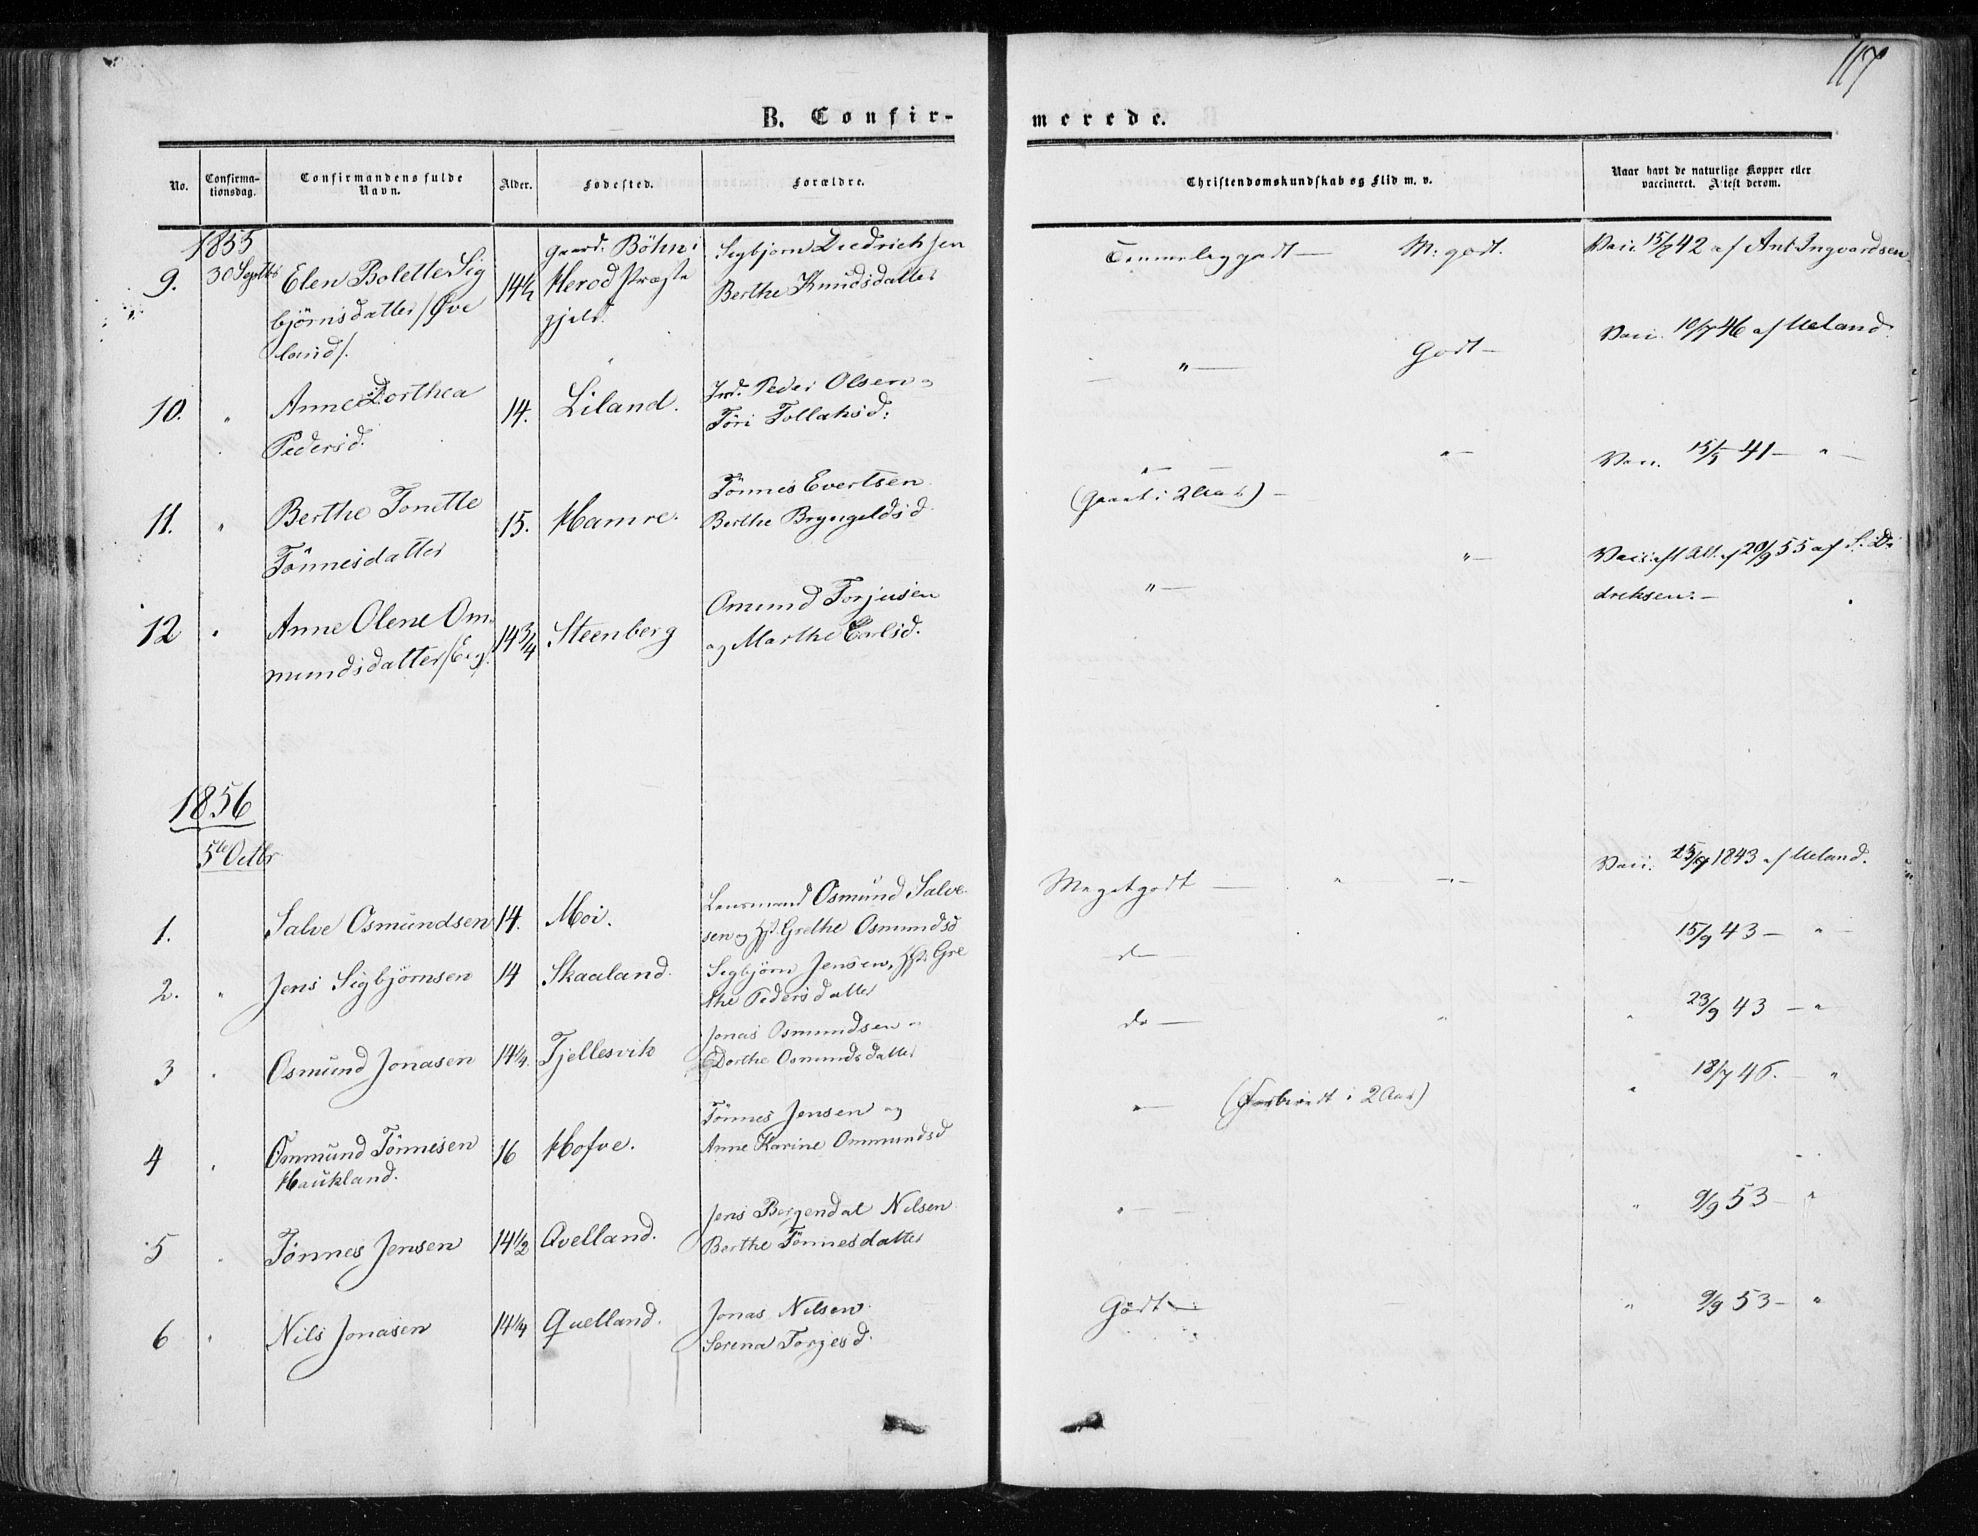 117
B. Confir-
merede.
No.
Confirma-
tionsdag.
Confirmandens fulde
Navn.
Alder.
Fødested.
Forældre.
Christendomskundskab og Flid m. v.
Naar havt de naturlige Kopper eller
vaccineret. Attest derom.
1855
9. 30 Septbr Elen Bolette Sig
bjørnsdatter /Øve
land/.
14½
Gaard. Böhn i
Herod Præste
gjeld.
Sigbjørn Diedrichsen
Berthe Knudsdatter
Temmelig godt — M: godt.
Vacc. 15/9 42 af Ant. Ingvardsen
10. " Anne Dorthea
Pedersd.
14. Liland.
Peder Olsen
Töri Tollaksd:
" — Godt —
Vacc. 10/7 46 af Ueland.
11. " Berthe Tonette
Tönnesdatter
15. Hamre.
Tönnes Evertsen
Berthe Bryngeldsd.
" —
(gaaet i 2 Aar) —
" —
Vacc. 15/9 41 — " —
12 " Anne Olene Om-
mundsdatter /Eeg/.
14¾ Steenberg
Omund Torjusen
og Marthe Carlsd.
" — " —
Vacc. eft Att. af 20/9 55 af S. Di
dreksen. —
1856
5te Octbr
1. Salve Osmundsen 14. Moi.
Lensmand Osmund Salve-
sen og Hst. Grethe Osmundsd
Meget godt — " — " —
Vacc. 25/9 1843 af Ueland.
2. " Jens Sigbjørnsen 14 Skaaland.
Sigbjørn Jensen, Hst. Gre
the Pedersdatter
d —
15/9 43 — " —
3 " Osmund Jonasen 14¼ Tjellesvik
Jonas Osmundsen "
Dorthe Osmundsdatter
do — "
" 23/9 43 — "
4 " Ommund Tönnesen
Haukland.
16 Hofve.
Tönnes Jensen og
Anne Karine Ommundsd
" — (Forberedt i 2 Aar)
" 18/7 46. — "
5 " Tönnes Jensen 14½ Qvelland.
Jens Bergendal Nilsen
Berthe Tönnesdatter
" —
" 9/9 53 — "
6 " Nils Jonasen 14¼ Quelland.
Jonas Nilsen
Serena Torjesd.
Godt —
" 9/9 53 — "